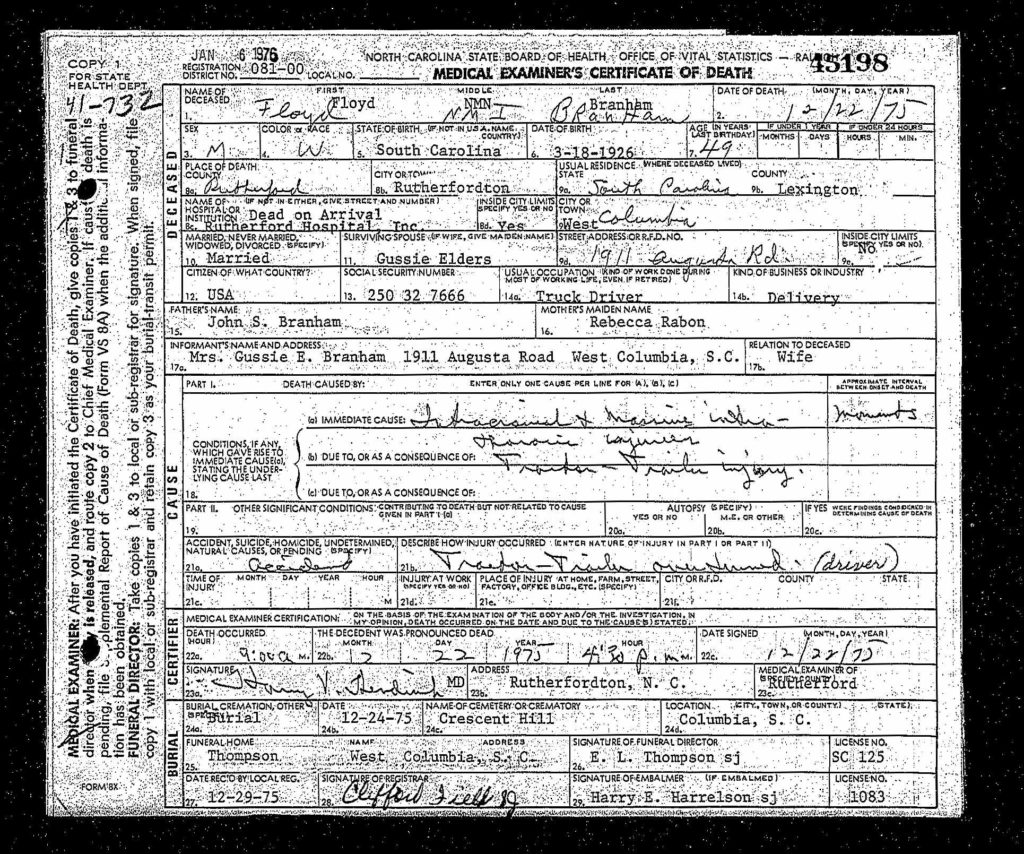 COPY 1
FOR STATE
HEALTH DEPT.
41-732
JAN 6 1976
REGISTRATION DISTRICT NO. 081-00 LOCAL NO.
NORTH CAROLINA STATE BOARD OF HEALTH, OFFICE OF VITAL STATISTICS —
MEDICAL EXAMINER'S CERTIFICATE OF DEATH
45198
MEDICAL EXAMINER: After you have initiated the Certificate of Death, give copies 1 & 3 to funeral
director when is released, and route copy 2 to Chief Medical Examiner. If death is
pending, file Report of Cause of Death (Form VS 8A) when the informa-
tion has been obtained.
FUNERAL DIRECTOR: Take copies 1 & 3 to local or sub-registrar for signature. When signed, file
copy 1 with local or sub-registrar and retain copy 3 as your burial-transit permit.
DECEASED
NAME OF DECEASED FIRST MIDDLE LAST DATE OF DEATH (MONTH, DAY, YEAR)
1. Floyd Floyd NMN NMI Branham Branham 2. 12/22/75
SEX COLOR or RACE STATE OF BIRTH (IF NOT IN U.S.A. NAME COUNTRY) DATE OF BIRTH AGE (IN YEARS LAST BIRTHDAY) IF UNDER 1 YEAR IF UNDER 24 HOURS
MONTHS DAYS HOURS MIN.
3. M 4. W 5. South Carolina 6. 3-18-1926 7. 49
PLACE OF DEATH COUNTY CITY OR TOWN USUAL RESIDENCE (WHERE DECEASED LIVED) STATE COUNTY
8a. Rutherford 8b. Rutherfordton 9a. South Carolina 9b. Lexington
NAME OF HOSPITAL OR INSTITUTION (IF NOT IN EITHER, GIVE STREET AND NUMBER) INSIDE CITY LIMITS (SPECIFY YES OR NO) CITY OR TOWN
Dead on Arrival
8c. Rutherford Hospital, Inc. 8d. Yes 9c. West Columbia
MARRIED, NEVER MARRIED, WIDOWED, DIVORCED (SPECIFY) SURVIVING SPOUSE (IF WIFE, GIVE MAIDEN NAME) STREET ADDRESS OR R.F.D. NO. INSIDE CITY LIMITS (SPECIFY YES OR NO)
10. Married 11. Gussie Elders 9d. 1911 Augusta Rd. 9e.
CITIZEN OF WHAT COUNTRY? SOCIAL SECURITY NUMBER USUAL OCCUPATION (KIND OF WORK DONE DURING MOST OF WORKING LIFE, EVEN IF RETIRED) KIND OF BUSINESS OR INDUSTRY
12. USA 13. 250 32 7666 14a. Truck Driver 14b. Delivery
FATHER'S NAME MOTHER'S MAIDEN NAME
15. John S. Branham 16. Rebecca Rabon
INFORMANT'S NAME AND ADDRESS RELATION TO DECEASED
17a. Mrs. Gussie E. Branham 1911 Augusta Road West Columbia, S.C. 17b. Wife
CAUSE
PART I. DEATH CAUSED BY: ENTER ONLY ONE CAUSE PER LINE FOR (A), (B), (C) APPROXIMATE INTERVAL BETWEEN ONSET AND DEATH
(a) IMMEDIATE CAUSE: Intracranial & Massive intra- moments
thoracic injuries
CONDITIONS, IF ANY, WHICH GAVE RISE TO IMMEDIATE CAUSE(a), STATING THE UNDERLYING CAUSE LAST
(b) DUE TO, OR AS A CONSEQUENCE OF: Tractor-Trailer injury.
18. (c) DUE TO, OR AS A CONSEQUENCE OF:
PART II. OTHER SIGNIFICANT CONDITIONS: CONTRIBUTING TO DEATH BUT NOT RELATED TO CAUSE GIVEN IN PART I (a) AUTOPSY (SPECIFY) YES OR NO M.E. OR OTHER IF YES WERE FINDINGS CONSIDERED IN DETERMINING CAUSE OF DEATH
19. 20a. 20b. 20c.
ACCIDENT, SUICIDE, HOMICIDE, UNDETERMINED, NATURAL CAUSES, OR PENDING (SPECIFY) DESCRIBE HOW INJURY OCCURRED (ENTER NATURE OF INJURY IN PART I OR PART II)
21a. accident 21b. Tractor-Trailer overturned. (driver)
TIME OF INJURY MONTH DAY YEAR HOUR INJURY AT WORK (SPECIFY YES OR NO) PLACE OF INJURY AT HOME, FARM, STREET, FACTORY, OFFICE BLDG., ETC. (SPECIFY) CITY OR R.F.D. COUNTY STATE
21c. M 21d. 21e. 21f.
CERTIFIER
MEDICAL EXAMINER CERTIFICATION: ON THE BASIS OF THE EXAMINATION OF THE BODY AND/OR THE INVESTIGATION, IN MY OPINION, DEATH OCCURRED ON THE DATE AND DUE TO THE CAUSE(S) STATED.
DEATH OCCURRED (HOUR) THE DECEDENT WAS PRONOUNCED DEAD MONTH DAY YEAR HOUR DATE SIGNED (MONTH, DAY, YEAR)
22a. 9:00 a M. 22b. 12 22 1975 4:30 p.m. M. 22c. 12/22/75
SIGNATURE ADDRESS MEDICAL EXAMINER OF (SPECIFY COUNTY)
23a. MD 23b. Rutherfordton, N. C. 23c. Rutherford
BURIAL
BURIAL, CREMATION, OTHER (SPECIFY) DATE NAME OF CEMETERY OR CREMATORY LOCATION (CITY, TOWN, OR COUNTY) (STATE)
24a. Burial 24b. 12-24-75 24c. Crescent Hill 24d. Columbia, S. C.
FUNERAL HOME NAME ADDRESS SIGNATURE OF FUNERAL DIRECTOR LICENSE NO.
25. Thompson West Columbia, S. C. 26. E. L. Thompson sj SC 125
DATE REC'D BY LOCAL REG. SIGNATURE OF REGISTRAR SIGNATURE OF EMBALMER (IF EMBALMED) LICENSE NO.
27. 12-29-75 28. Clifford Field 29. Harry E. Harrelson sj 1083
FORM 8X